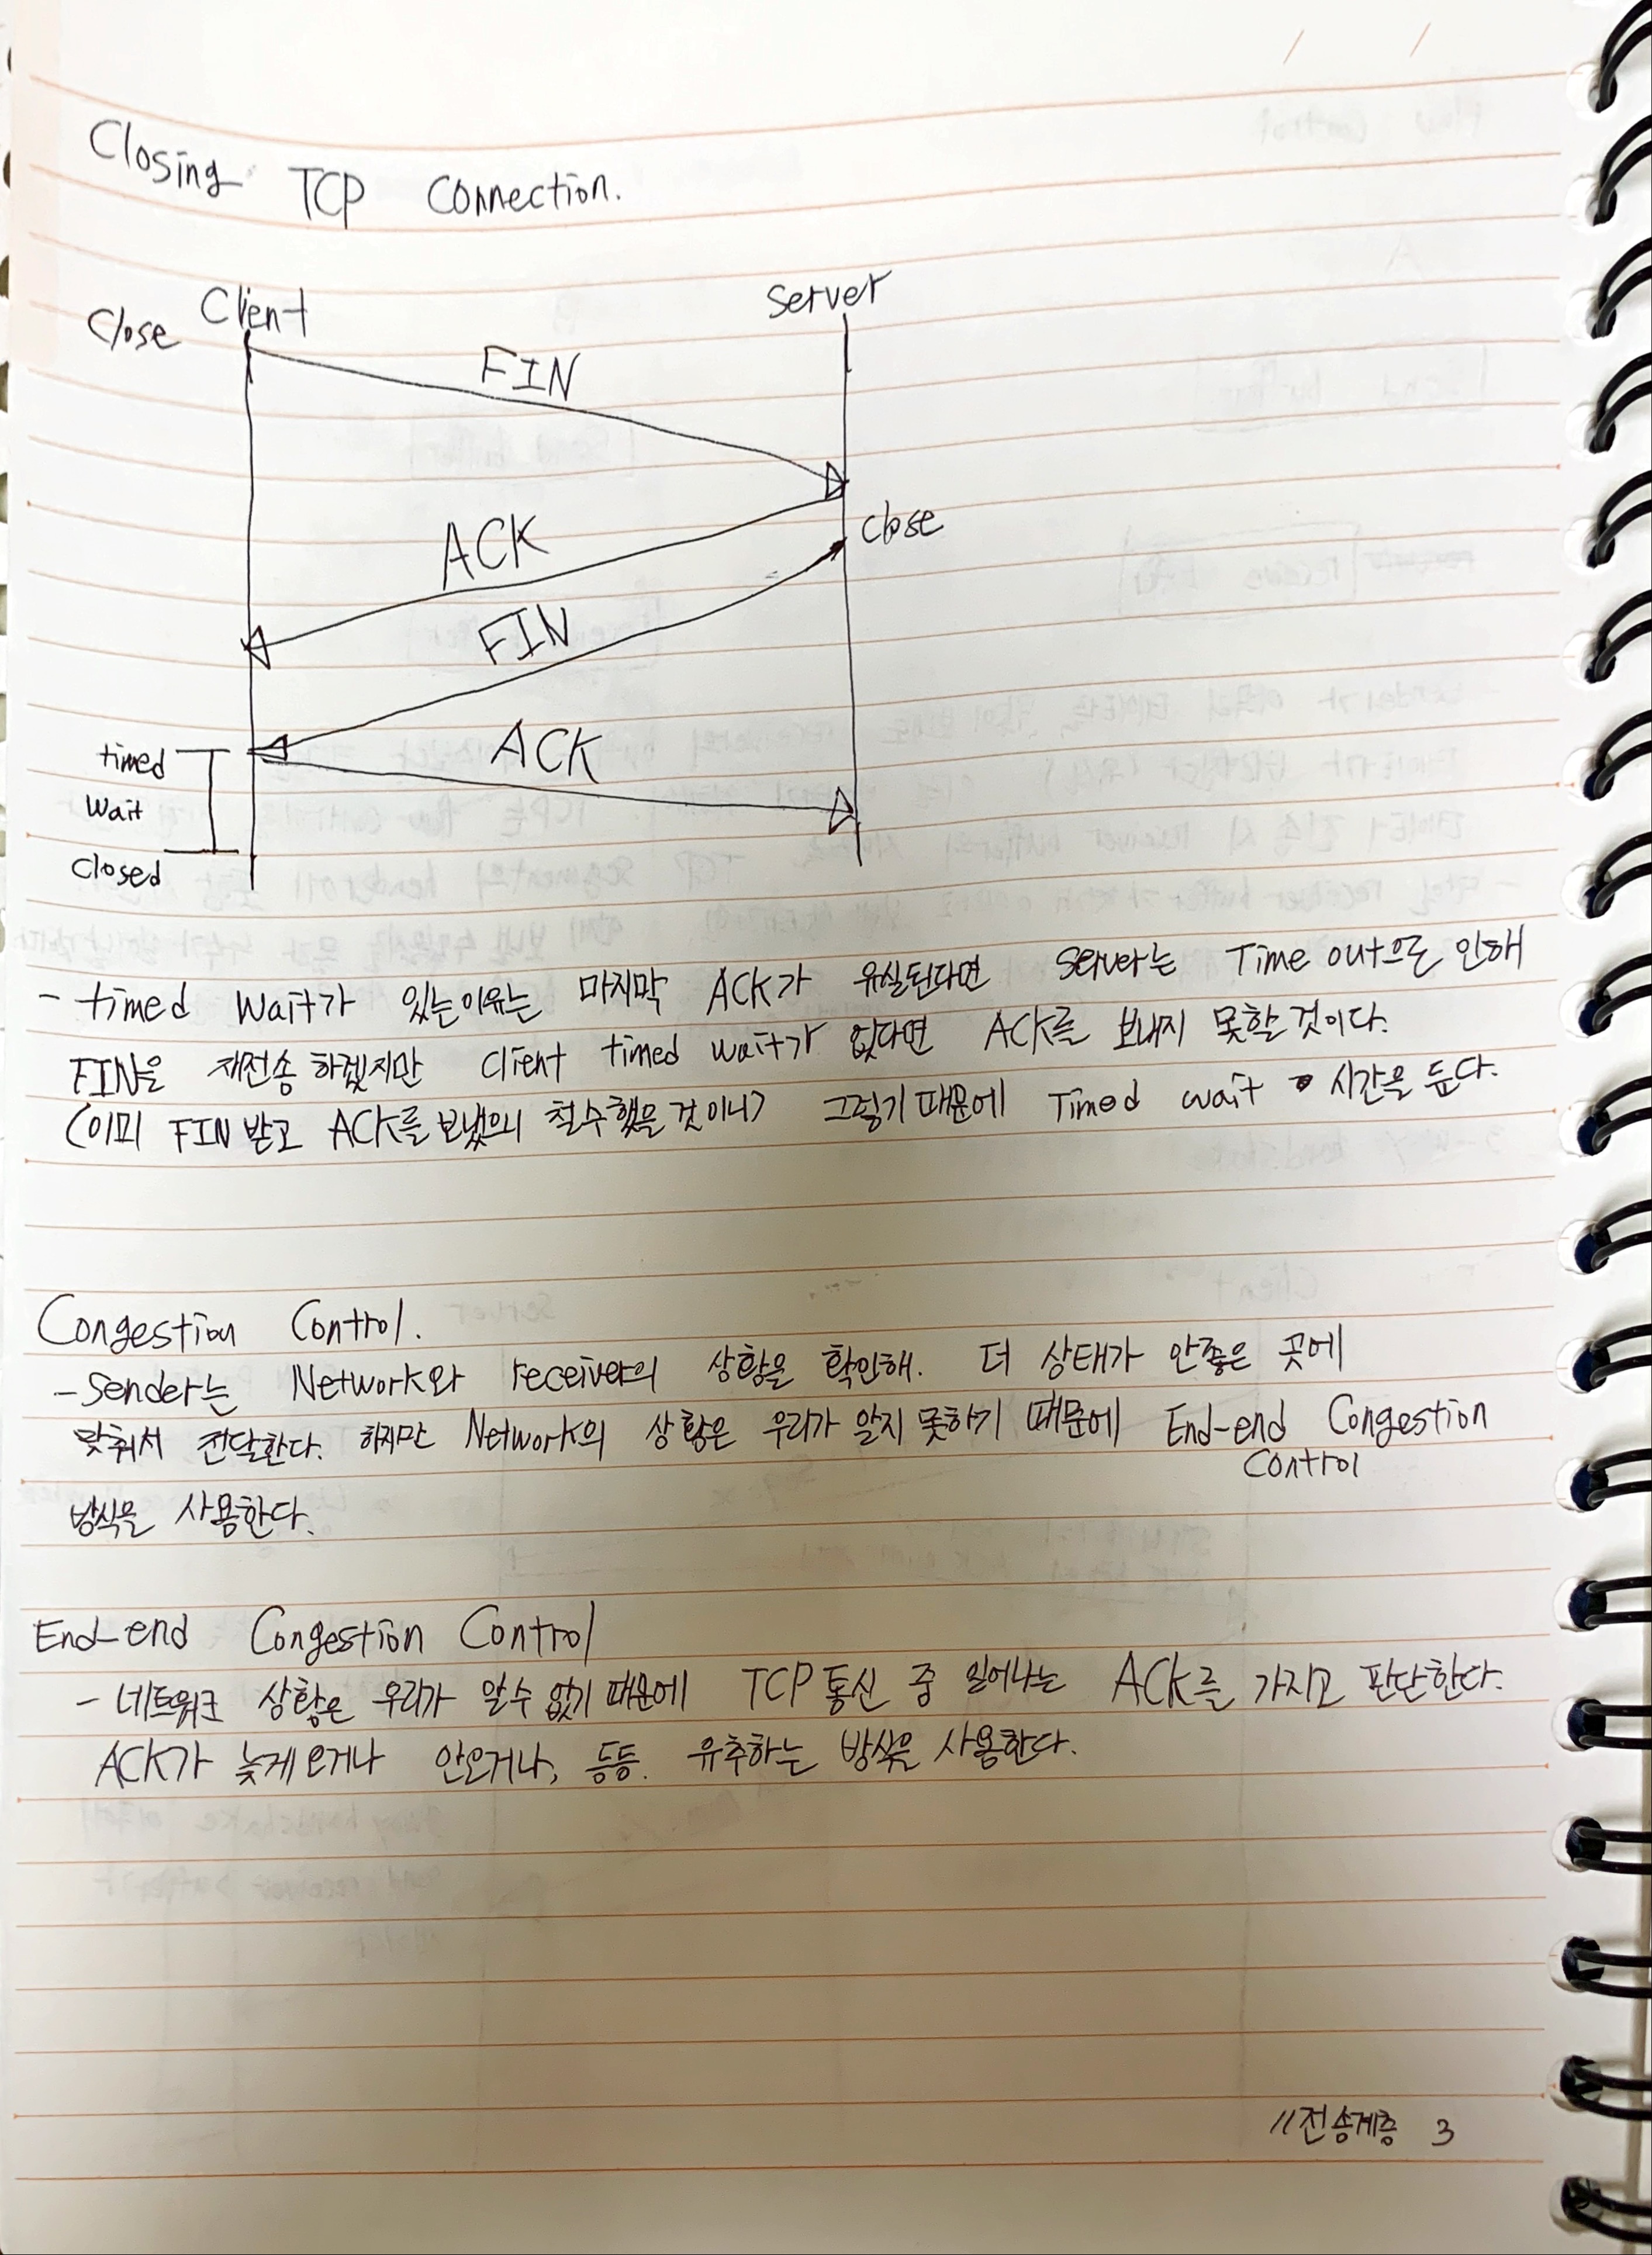 Closing TCP Connection.
Client
Server
Close
FIN
ACK
close
FIN
ACK
timed
wait
closed
- timed wait가 있는이유는 마지막 ACK가 유실된다면 server는 Time out으로 인해
FIN을 재전송 하겠지만 client timed wait가 없다면 ACK를 보내지 못할 것이다.
(이미 FIN 받고 ACK를 보냈으니 철수했을 것이니) 그렇기 때문에 Timed wait 시간을 둔다.
Congestion Control.
- Sender는 Network와 receiver의 상황을 확인해. 더 상태가 안좋은 곳에
맞춰서 전달한다. 하지만 Network의 상황은 우리가 알지 못하기 때문에 End-end Congestion
Control
방식을 사용한다.
End-end Congestion Control
- 네트워크 상황은 우리가 알수 없기 때문에 TCP통신 중 일어나는 ACK를 가지고 판단한다.
ACK가 늦게오거나 안오거나, 등등. 유추하는 방식을 사용한다.
//전송계층 3